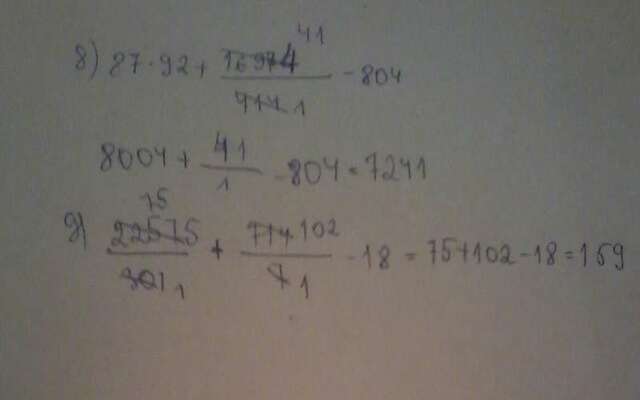 8) 87 · 92 + 16974 41 / 414 1 - 804
8004 + 41 / 1 - 804 = 7241
9) 22575 75 / 301 1 + 714 102 / 7 1 - 18 = 75 + 102 - 18 = 159